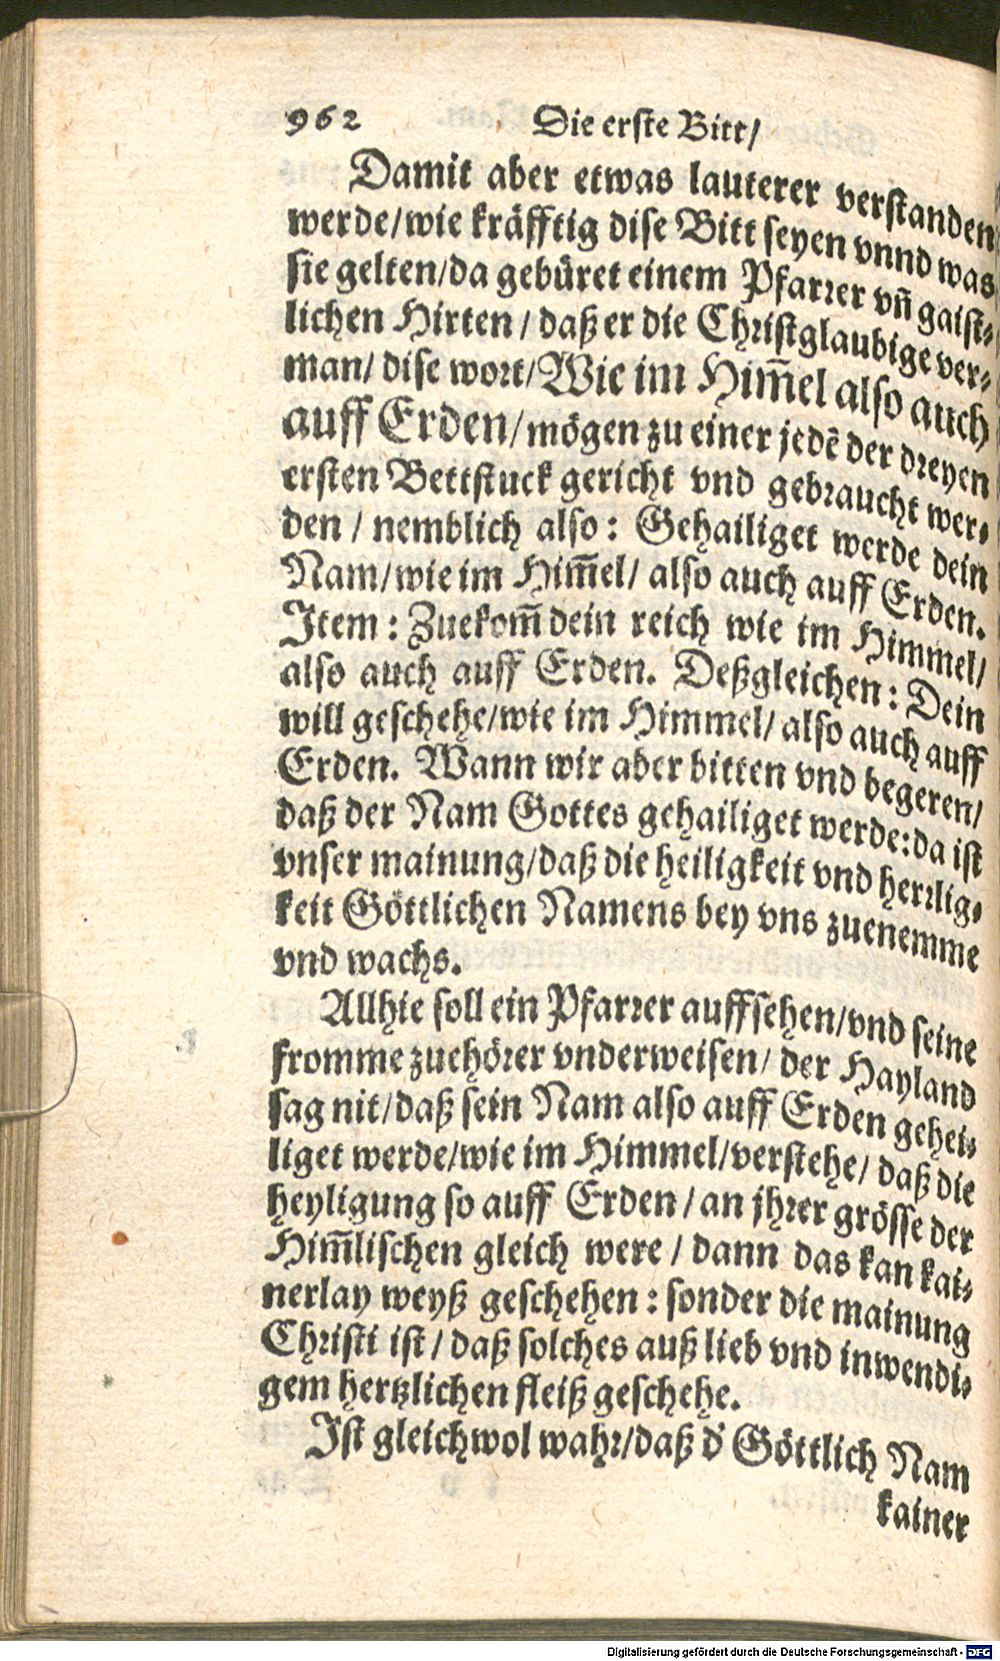 962 Die erste Bitt/
Damit aber etwas lauterer verstanden
werde/wie kräfftig dise Bitt seyen vnnd was
sie gelten/da gebüret einem Pfarrer vn̄ gaist-
lichen Hirten / daß er die Christglaubige ver-
man/ dise wort/Wie im Him̄el also auch
auff Erden/mögen zu einer jedē der dreyen
ersten Bettstuck gericht vnd gebraucht wer-
den / nemblich also: Gehailiget werde dein
Nam/wie im Him̄el/ also auch auff Erden.
Item: Zuekom̄ dein reich wie im Himmel/
also auch auff Erden. Deßgleichen: Dein
will geschehe/wie im Himmel/ also auch auff
Erden. Wann wir aber bitten vnd begeren/
daß der Nam Gottes gehailiget werde:da ist
vnser mainung/daß die heiligkeit vnd herrlig-
keit Göttlichen Namens bey vns zuenemme
vnd wachs.
Allhie soll ein Pfarrer auffsehen/vnd seine
fromme zuehörer vnderweisen/ der Hayland
sag nit/daß sein Nam also auff Erden gehei-
liget werde/wie im Himmel/verstehe/ daß die
heyligung so auff Erden/an jhrer grösse der
Him̄lischen gleich were / dann das kan kai-
nerlay weyß geschehen: sonder die mainung
Christi ist/ daß solches auß lieb vnd inwendi-
gem hertzlichen fleiß geschehe.
Ist gleichwol wahr/daß d' Göttlich Nam
kainer
Digitalisierung gefördert durch die Deutsche Forschungsgemeinschaft - DFG